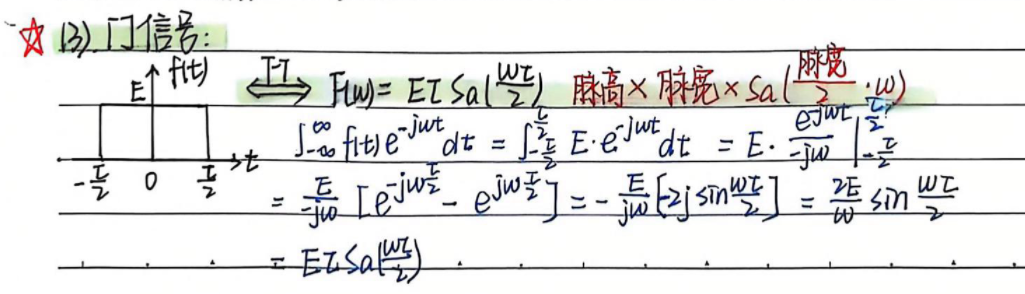 ☆ (3). 门信号:
E f(t) -τ/2 0 τ/2 t
F·T ⟺ F(ω) = EτSa(ωτ/2) 脉高×脉宽×Sa(脉宽/2·ω)
∫_{-∞}^{∞} f(t)e^{-jωt}dt = ∫_{-τ/2}^{τ/2} E·e^{-jωt}dt = E·e^{-jωt}/(-jω) |_{-τ/2}^{τ/2}
= E/(-jω) [e^{-jωτ/2} - e^{jωτ/2}] = -E/(jω)[-2j sin ωτ/2] = 2E/ω sin ωτ/2
= EτSa(ωτ/2)